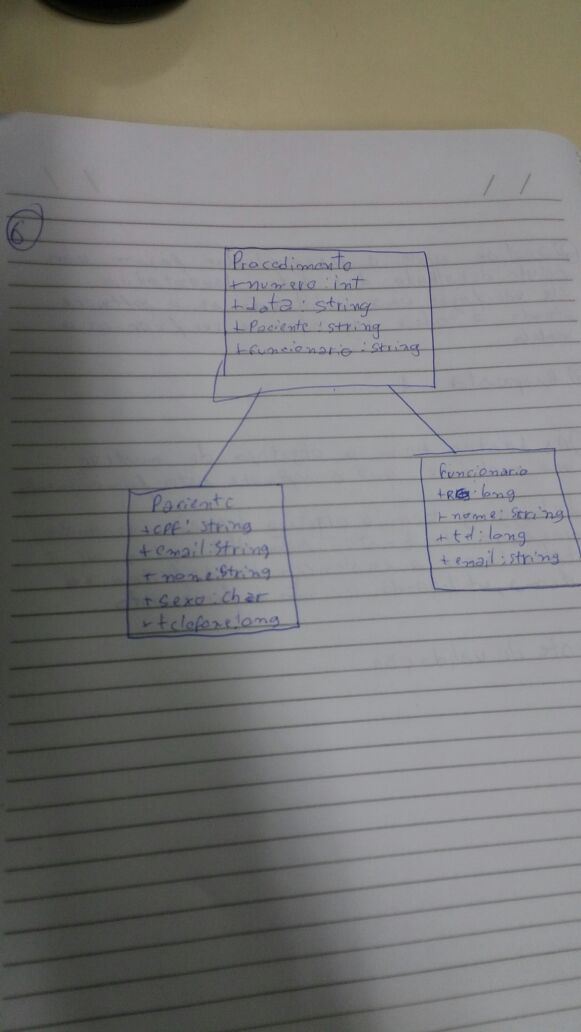 6
Procedimento
+numero : int
+data : string
+Paciente : string
+funcionario : string
Paciente
+cpf : string
+email : string
+nome : string
+sexo : char
+telefone : long
funcionario
+RG : long
+nome : string
+tel : long
+email : string